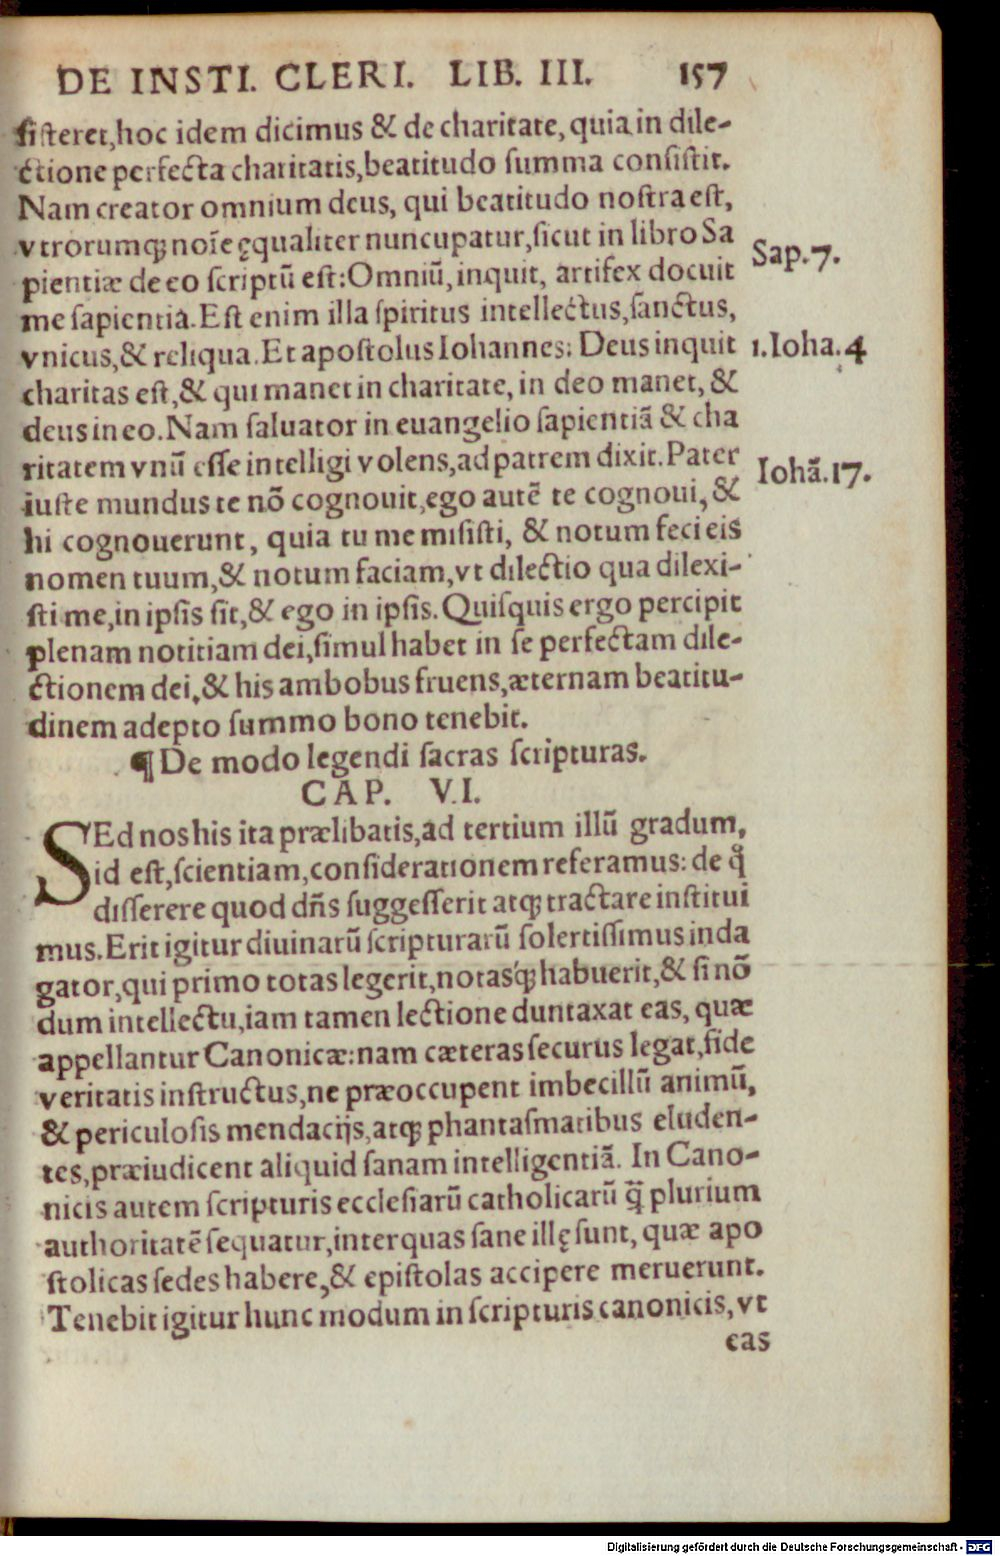 DE INSTI. CLERI. LIB. III. 157
sisteret, hoc idem dicimus & de charitate, quia in dile-
ctione perfecta charitatis, beatitudo summa consistit.
Nam creator omnium deus, qui beatitudo nostra est,
vtrorumq; noīe ęqualiter nuncupatur, sicut in libro Sa
pientiæ de eo scriptū est: Omniū, inquit, artifex docuit
Sap. 7.
me sapientia. Est enim illa spiritus intellectus, sanctus,
vnicus, & reliqua. Et apostolus Iohannes: Deus inquit
1. Ioha. 4
charitas est, & qui manet in charitate, in deo manet, &
deus in eo. Nam saluator in euangelio sapientiā & cha
ritatem vnū esse intelligi volens, ad patrem dixit. Pater
Iohā. 17.
iuste mundus te nō cognouit, ego autē te cognoui, &
hi cognouerunt, quia tu me misisti, & notum feci eis
nomen tuum, & notum faciam, vt dilectio qua dilexi-
sti me, in ipsis sit, & ego in ipsis. Quisquis ergo percipit
plenam notitiam dei, simul habet in se perfectam dile-
ctionem dei, & his ambobus fruens, æternam beatitu-
dinem adepto summo bono tenebit.
¶ De modo legendi sacras scripturas.
CAP. VI.
SEd nos his ita prælibatis, ad tertium illū gradum,
id est, scientiam, considerationem referamus: de q̊
disserere quod dñs suggesserit atq; tractare institui
mus. Erit igitur diuinarū scripturarū solertissimus inda
gator, qui primo totas legerit, notasq́; habuerit, & si nō
dum intellectu, iam tamen lectione duntaxat eas, quæ
appellantur Canonicæ: nam cæteras securus legat, fide
veritatis instructus, ne præoccupent imbecillū animū,
& periculosis mendacijs, atq; phantasmatibus eluden-
tes, præiudicent aliquid sanam intelligentiā. In Cano-
nicis autem scripturis ecclesiarū catholicarū q̄̄ plurium
authoritatē sequatur, inter quas sane illę sunt, quæ apo
stolicas sedes habere, & epistolas accipere meruerunt.
Tenebit igitur hunc modum in scripturis canonicis, vt
eas
Digitalisierung gefördert durch die Deutsche Forschungsgemeinschaft - DFG